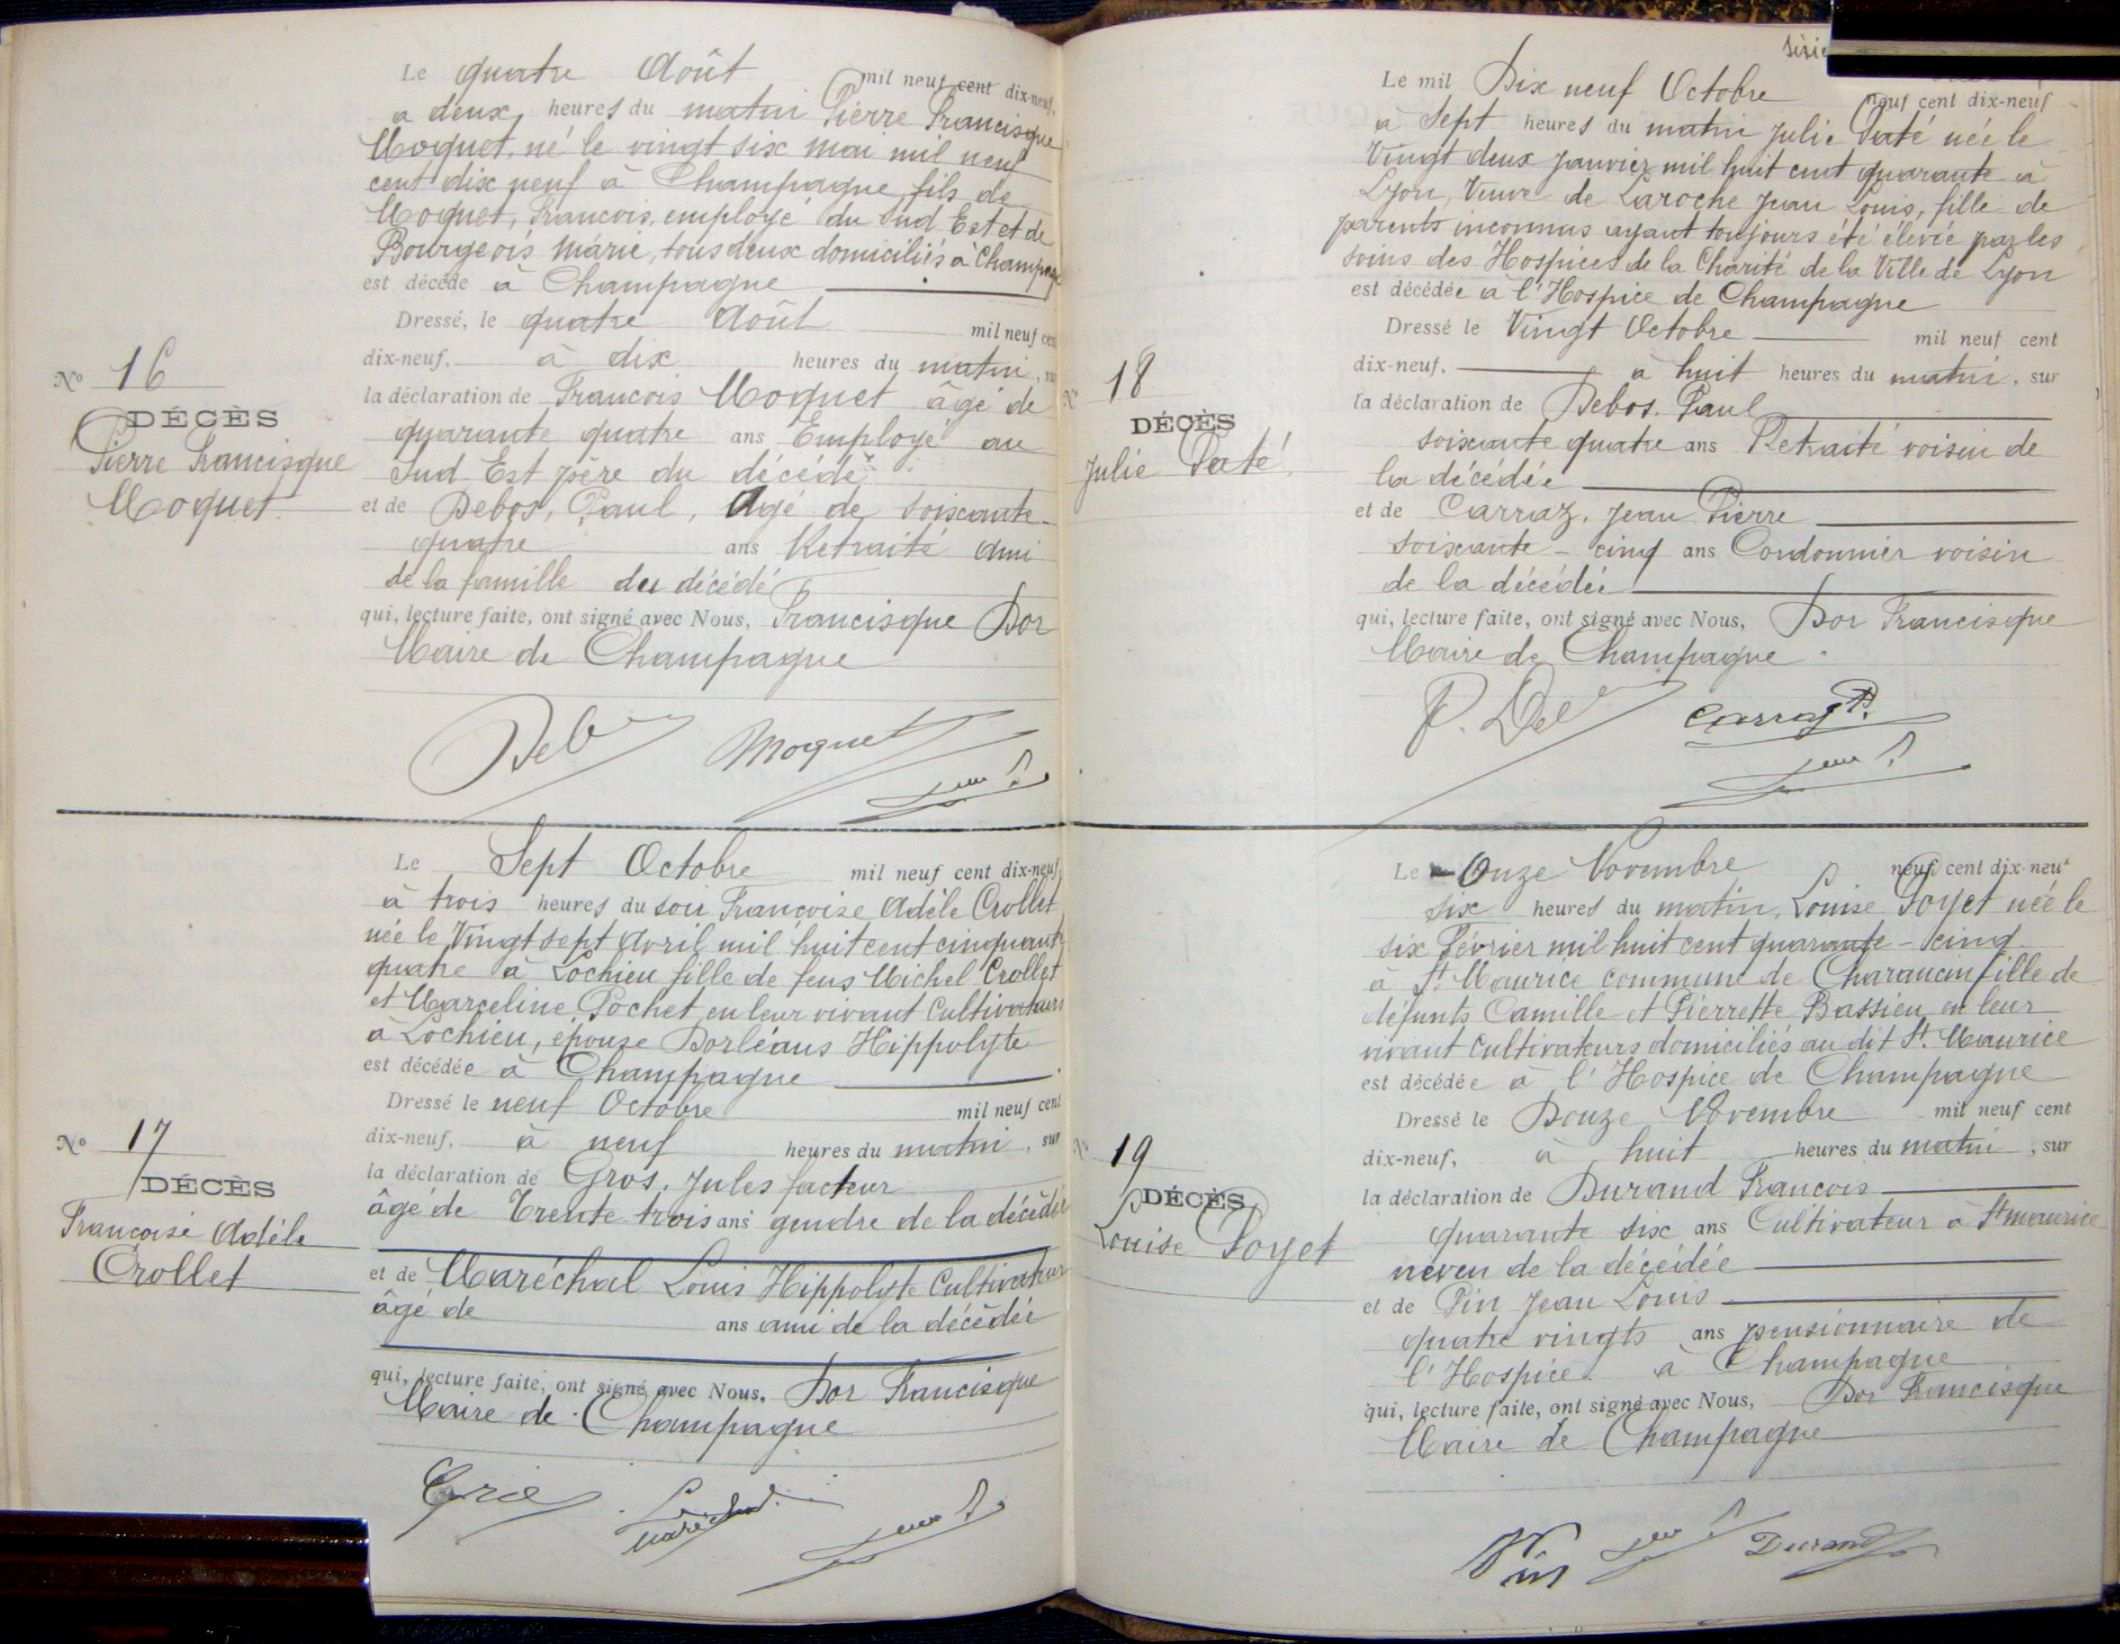 Le quatre Août mil neuf cent dix-neuf,
a deux heures du matin Pierre Francisque
Moquet, né le vingt six mai mil neuf
cent dix neuf à Champagne fils de
Moquet, Francois, employé du Sud Est et de
Bourgeois Marie, tous deux domiciliés à Champagne
est décédé à Champagne
Dressé, le quatre Août mil neuf cent
dix-neuf, à dix heures du matin, sur
la déclaration de Francois Moquet âgé de
quarante quatre ans Employé au
Sud Est père du décédé
et de Debos, Paul, Agé de soixante
quatre ans Retraité ami
de la famille du décédé
qui, lecture faite, ont signé avec Nous, Francisque Dor
Maire de Champagne
Nº 16
DÉCÈS
Pierre Francisque
Moquet
Moquet
Le Sept Octobre mil neuf cent dix-neuf,
à trois heures du soir Francoise Adèle Crollet
née le Vingt sept Avril mil huit cent cinquante
quatre à Lochieu fille de feus Michel Crollet
et Marceline Pochet en leur vivant Cultivateurs
à Lochieu, épouse Dorléans Hippolyte
est décédée à Champagne
Dressé le neuf Octobre mil neuf cent
dix-neuf, à neuf heures du matin, sur
la déclaration de Gros, Jules facteur
âgé de Trente trois ans gendre de la décédée
et de Maréchal Louis Hippolyte Cultivateur
âgé de ans ami de la décédée
qui, lecture faite, ont signé avec Nous, Dor Francisque
Maire de Champagne
Nº 17
DÉCÈS
Francoise Adèle
Crollet
Maréchal
Le mil Dix neuf Octobre neuf cent dix-neuf
à Sept heures du matin Julie Paté née le
Vingt deux janvier mil huit cent quarante à
Lyon, Veuve de Laroche Jean Louis, fille de
parents inconnus ayant toujours été élevée par les
soins des Hospices de la Charité de la Ville de Lyon
est décédée à l'Hospice de Champagne
Dressé le Vingt Octobre mil neuf cent
dix-neuf, à huit heures du matin, sur
la déclaration de Debos, Paul
soixante quatre ans Retraité voisin de
la décédée
et de Carraz, Jean Pierre
soixante-cinq ans Cordonnier voisin
de la décédée
qui, lecture faite, ont signé avec Nous, Dor Francisque
Maire de Champagne
Nº 18
DÉCÈS
Julie Paté
Le Onze Novembre neuf cent dix-neuf
six heures du matin, Louise Poyet née le
six Février mil huit cent quarante-cinq
à St Maurice commune de Charancin fille de
défunts Camille et Pierrette Bassieu en leur
vivant cultivateurs domiciliés au dit St. Maurice
est décédée à l'Hospice de Champagne
Dressé le Douze Novembre mil neuf cent
dix-neuf, à huit heures du matin, sur
la déclaration de Durand Francois
quarante six ans Cultivateur à St maurice
neveu de la décédée
et de Pin Jean Louis
quatre vingts ans pensionnaire de
l'Hospice à Champagne
qui, lecture faite, ont signé avec Nous, Dor Francisque
Maire de Champagne
Nº 19
DÉCÈS
Louise Poyet
Pin Durand